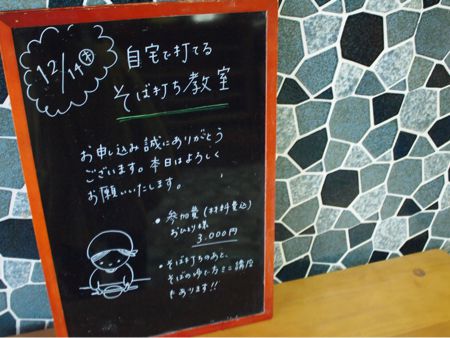 12/14 ㊍
自宅で打てる
そば打ち教室
お申し込み誠にありがとう
ございます。本日はよろしく
お願いいたします。
• 参加費(材料費込)
お1人様
3,000円
• そば打ちのあと、
そばのゆで方ミニ講座
もあります!!